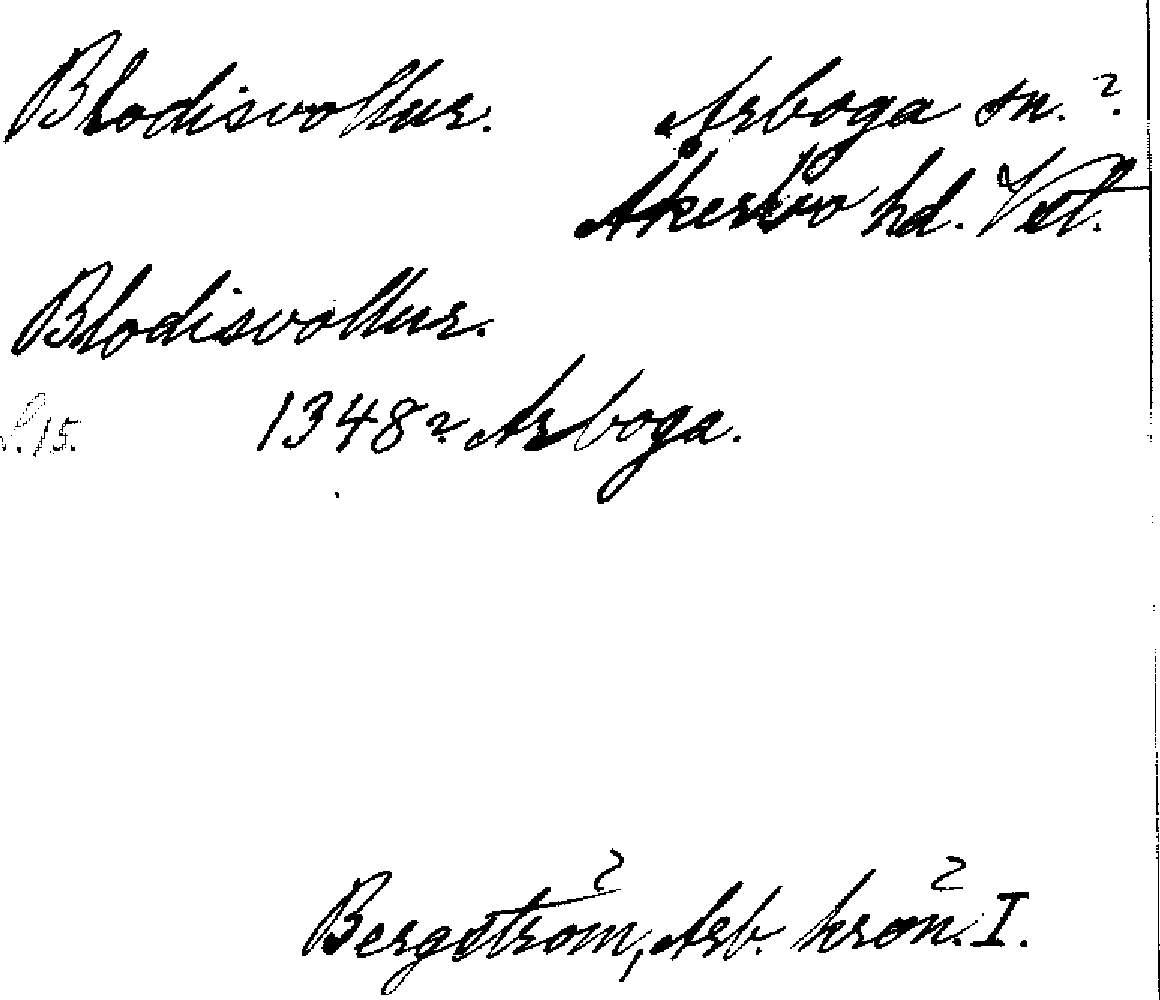 Blodisvollur. Arboga sn.?
Åkerbo hd. Vstl.
Blodisvollur.
S. 15. 1348? Arboga.
Bergström, Arb. krön. I.